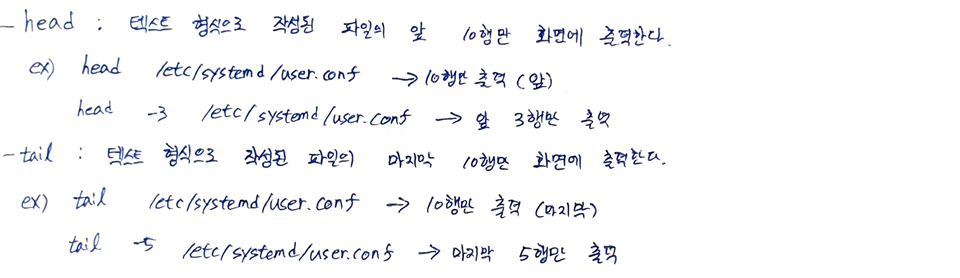 - head : 텍스트 형식으로 작성된 파일의 앞 10행만 화면에 출력한다.
ex) head /etc/systemd/user.conf → 10행만 출력 (앞)
head -3 /etc/systemd/user.conf → 앞 3행만 출력
- tail : 텍스트 형식으로 작성된 파일의 마지막 10행만 화면에 출력한다.
ex) tail /etc/systemd/user.conf → 10행만 출력 (마지막)
tail -5 /etc/systemd/user.conf → 마지막 5행만 출력